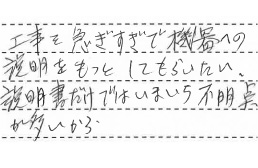 工事を急ぎすぎで機器への
説明をもっとしてもらいたい。
説明書だけではいまいち不明点
が多いから